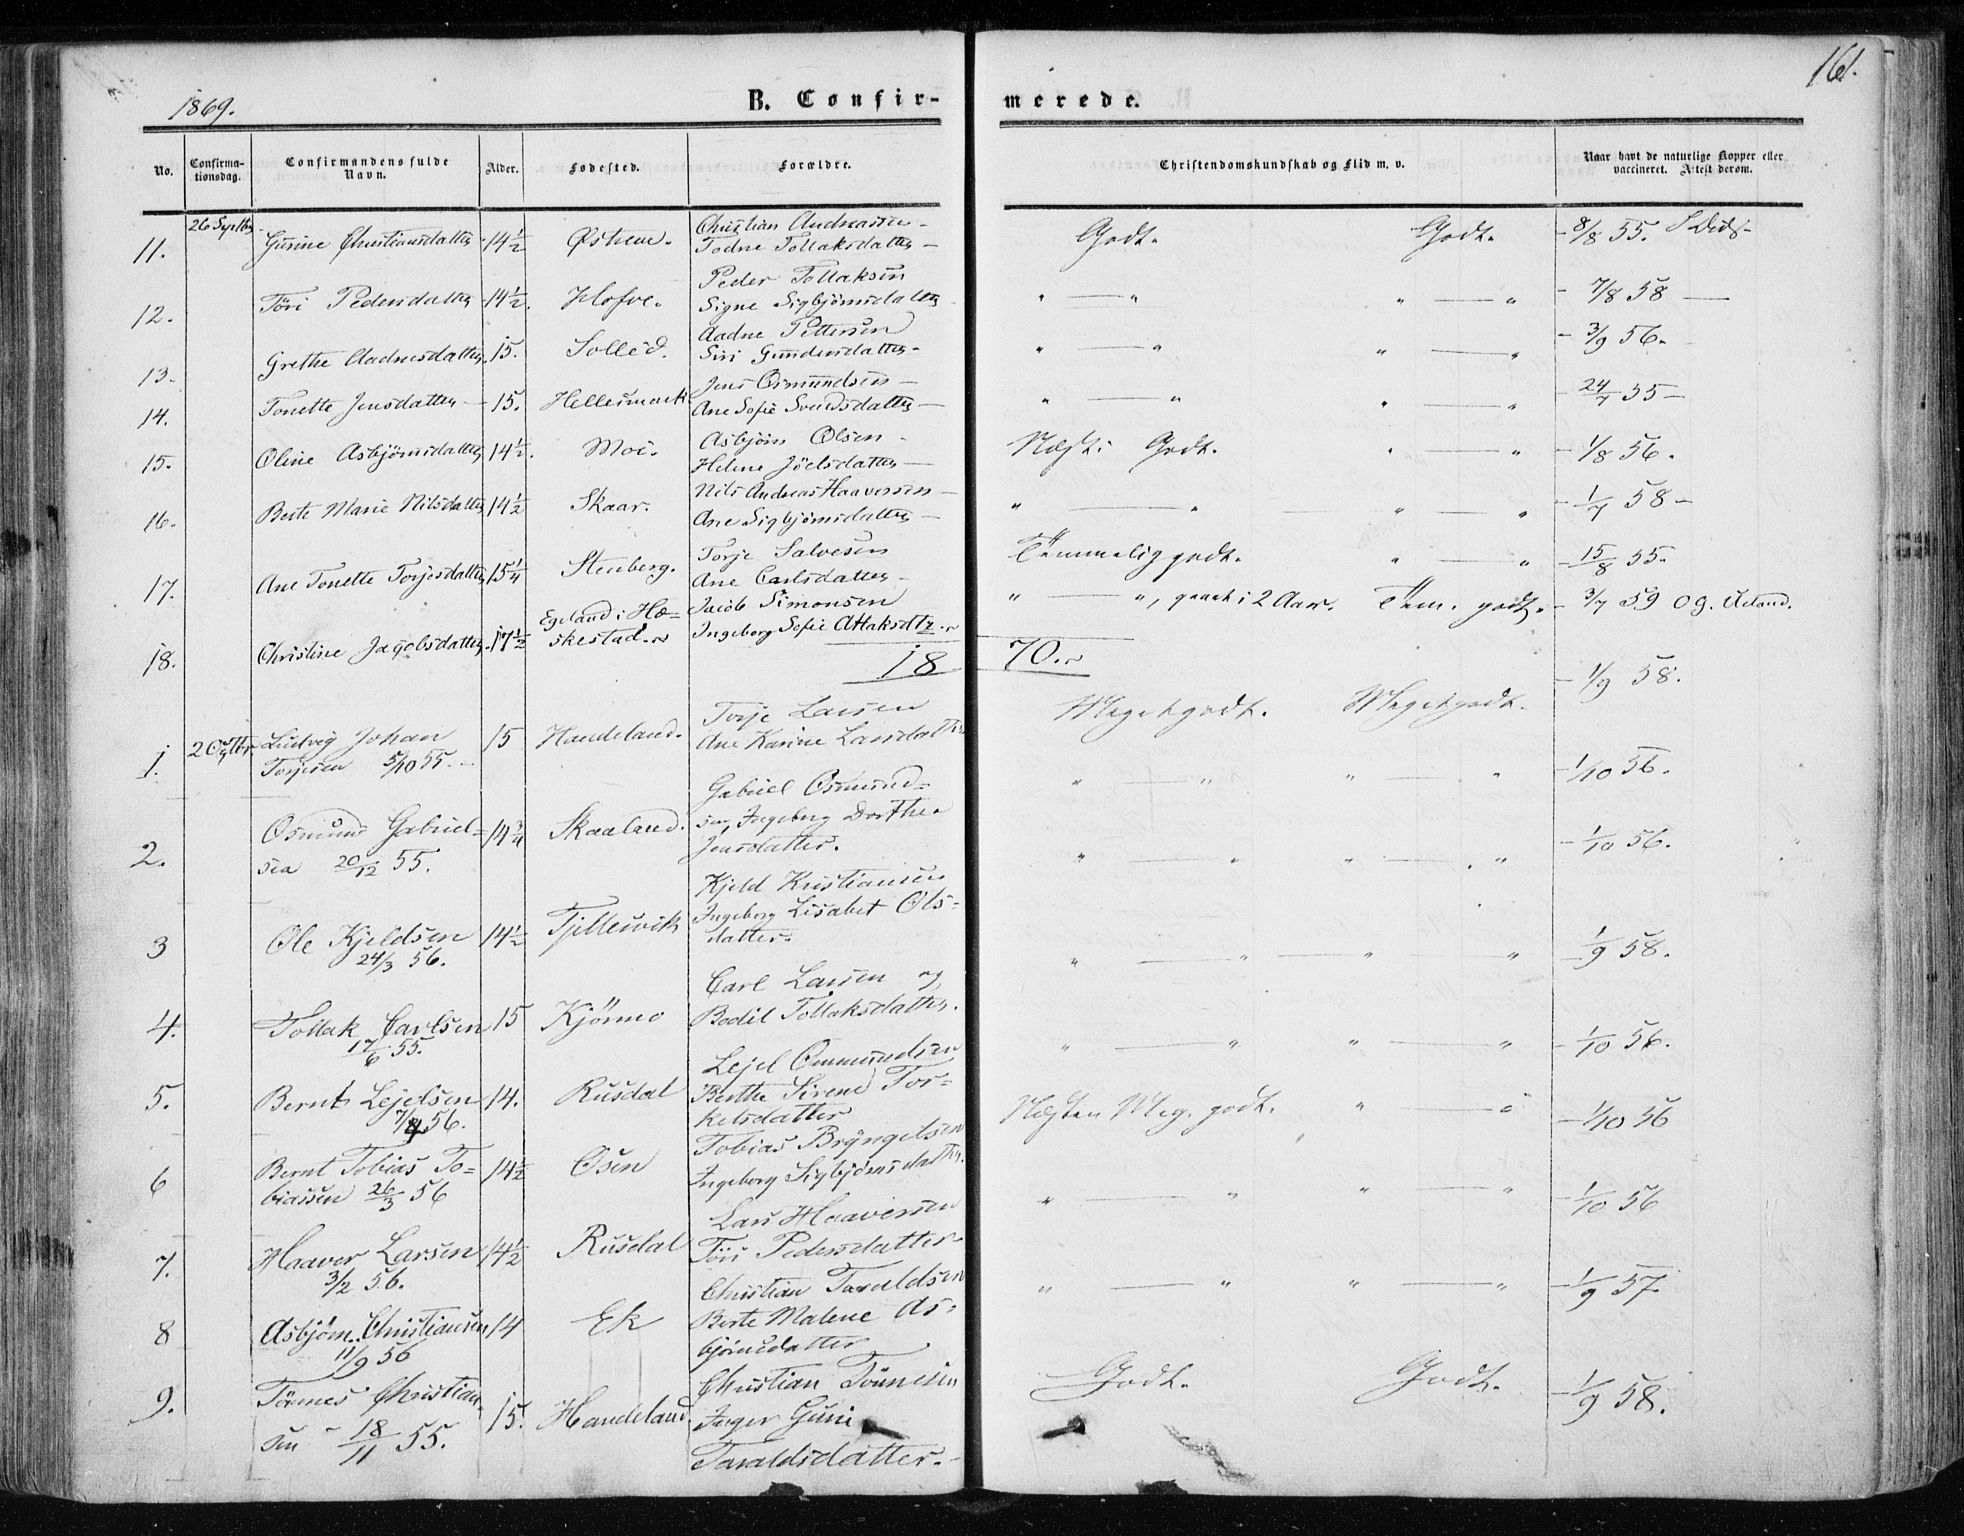 1869.
B. Confir-
merede.
161.
No.
Confirma-
tionsdag.
Confirmandens fulde
Navn.
Alder.
Fødested.
Forældre.
Christendomskundskab og Flid m. v.
Naar havt de naturlige Kopper eller
vaccineret. Attest derom.
26 Septbr
11. Gurine Christiansdatter 14½ Østrem.
Christian Andreassen
Todne Tollaksdatter
Godt. Godt. 8/8 55.
12. Töri Pedersdatter 14½. Hofve.
Peder Tollaksen
Signe Sigbjörnsdatter
" — " " — " 7/8 58 —
13. Grethe Aadnesdatter 15. Solli d.
Aadne Pettersen
Siri Gundersdatter
" — " " — " 3/9 56.
14. Tonette Jensdatter 15. Hellesmark
Jens Osmundsen
Ane Sofie Svendsdatter
" — " " — " 24/7 55
15. Oline Asbjörnsdatter 14½. Moi.
Asbjörn Olsen
Helene Jöelsdatter
Næst: Godt. " — " 1/8 56.
16. Berte Marie Nilsdatter 14½ Skaar.
Nils Andreas Haaversen
Ane Sigbjörnsdatter
" — " " — " 1/7 58
17. Ane Tonette Torjesdatter 15¼ Stenberg.
Torje Salvesen
Ane Carlsdatter
Temmelig godt. " — " 15/8 55.
18. Christine Jacobsdatter 17½ Egeland i Hæ=
skestad.
Jacob Simonsen
Ingeborg Sofie Atlaksdtr
" — ", gaaet i 2 Aar. Tem. godt. 3/7 59 O g. Ueland.
18 70.
1. 2 Octbr Ludvig Johan
Torjesen 5/10 55.
15 Handeland.
Torje Larsen
Ane Karine Larsdatter
Megetgodt. Megetgodt. 1/9 58.
2. Osmund Gabriel=
sen 20/12 55.
14¾ Skaaland.
Gabriel Osmund=
sen, Ingeborg Dorthea
Jensdatter.
" — " " — " 1/10 56.
3 Ole Kjeldsen
24/3 56.
14½ Tjillesvik
Kjeld Kristiansen
Ingeborg Lisabet Ols=
datter.
" — " " — " 1/10 56.
4. Tollak Carlsen
17/6 55.
15 Kjörmo
Carl Larsen og
Bodil Tollaksdatter.
" — " — " 1/9 58.
5. Bernt Lejelsen
7/4 56.
14. Rusdal
Lejel Ommundsen
Berthe Sirene Tor=
kelsdatter
" — " " — " 1/10 56.
6 Bernt Tobias To=
biassen 26/3 56
14½ Osen
Tobias Bryngelsen
Ingeborg Sigbjörnsdatter.
Næsten Meg. godt. " — " 1/10 56
7. Haaver Larsen
3/2 56.
14½ Rusdal
Lars Haaversen
Töri Pedersdatter
" — " " — " 1/10 56
8 Asbjörn Christiansen
11/9 56
14 Ek
Christian Taraldsen
Berte Malene As=
björnsdatter
" — " " — " 1/9 57.
9. Tönnes Christian=
sen 18/11 55.
15. Handeland.
Christian Tönnesen
Inger Guri
Taraldsdatter.
Godt. Godt. 1/9 58.